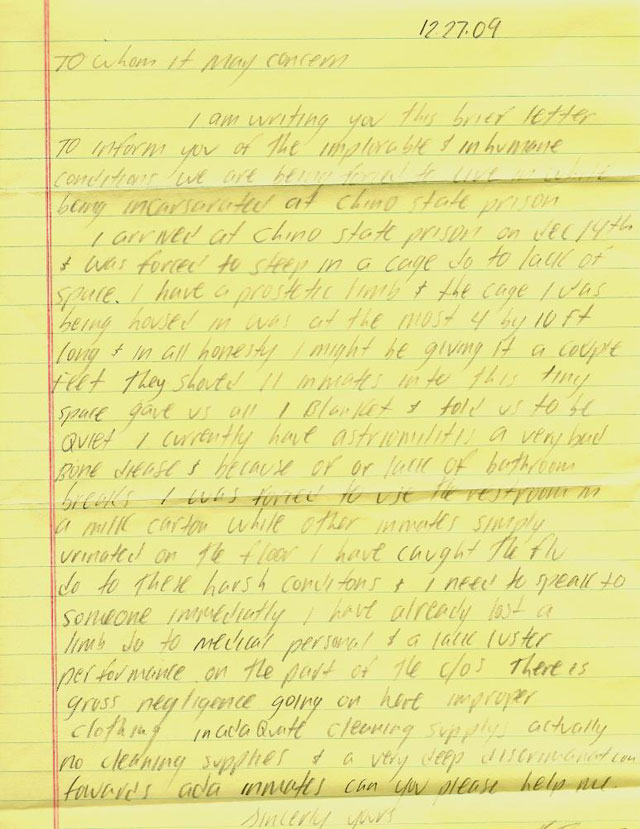 12.27.09
TO whom it may concern
I am writing you this brief letter
TO inform you of the implorable & inhumane
conditions we are being forced to live in while
being incarsarated at chino state prison
I arrived at chino state prison on Dec 14th
& was forced to sleep in a cage do to lack of
space. I have a prostetic limb & the cage I was
being housed in was at the most 4 by 10 ft
long & in all honesty I might be giving it a couple
feet They shoved 11 inmates into this tiny
space gave us all 1 Blanket & told us to be
Quiet I currently have astriomilitis a very bad
Bone diease & because of or lack of bathroom
breaks I was forced to use the restroom in
a milk carton while other inmates simply
urinated on the floor I have caught the flu
do to these harsh conditons & I need to speak to
someone immediatly I have already lost a
limb do to medical personal & a lack luster
performance on the part of the c/os There is
gross negligence going on here improper
clothing inadaQuate cleaning supplys actually
no cleaning supplies & a very deep discrimanation
towards ada inmates can you please help me.
Sincerly yours